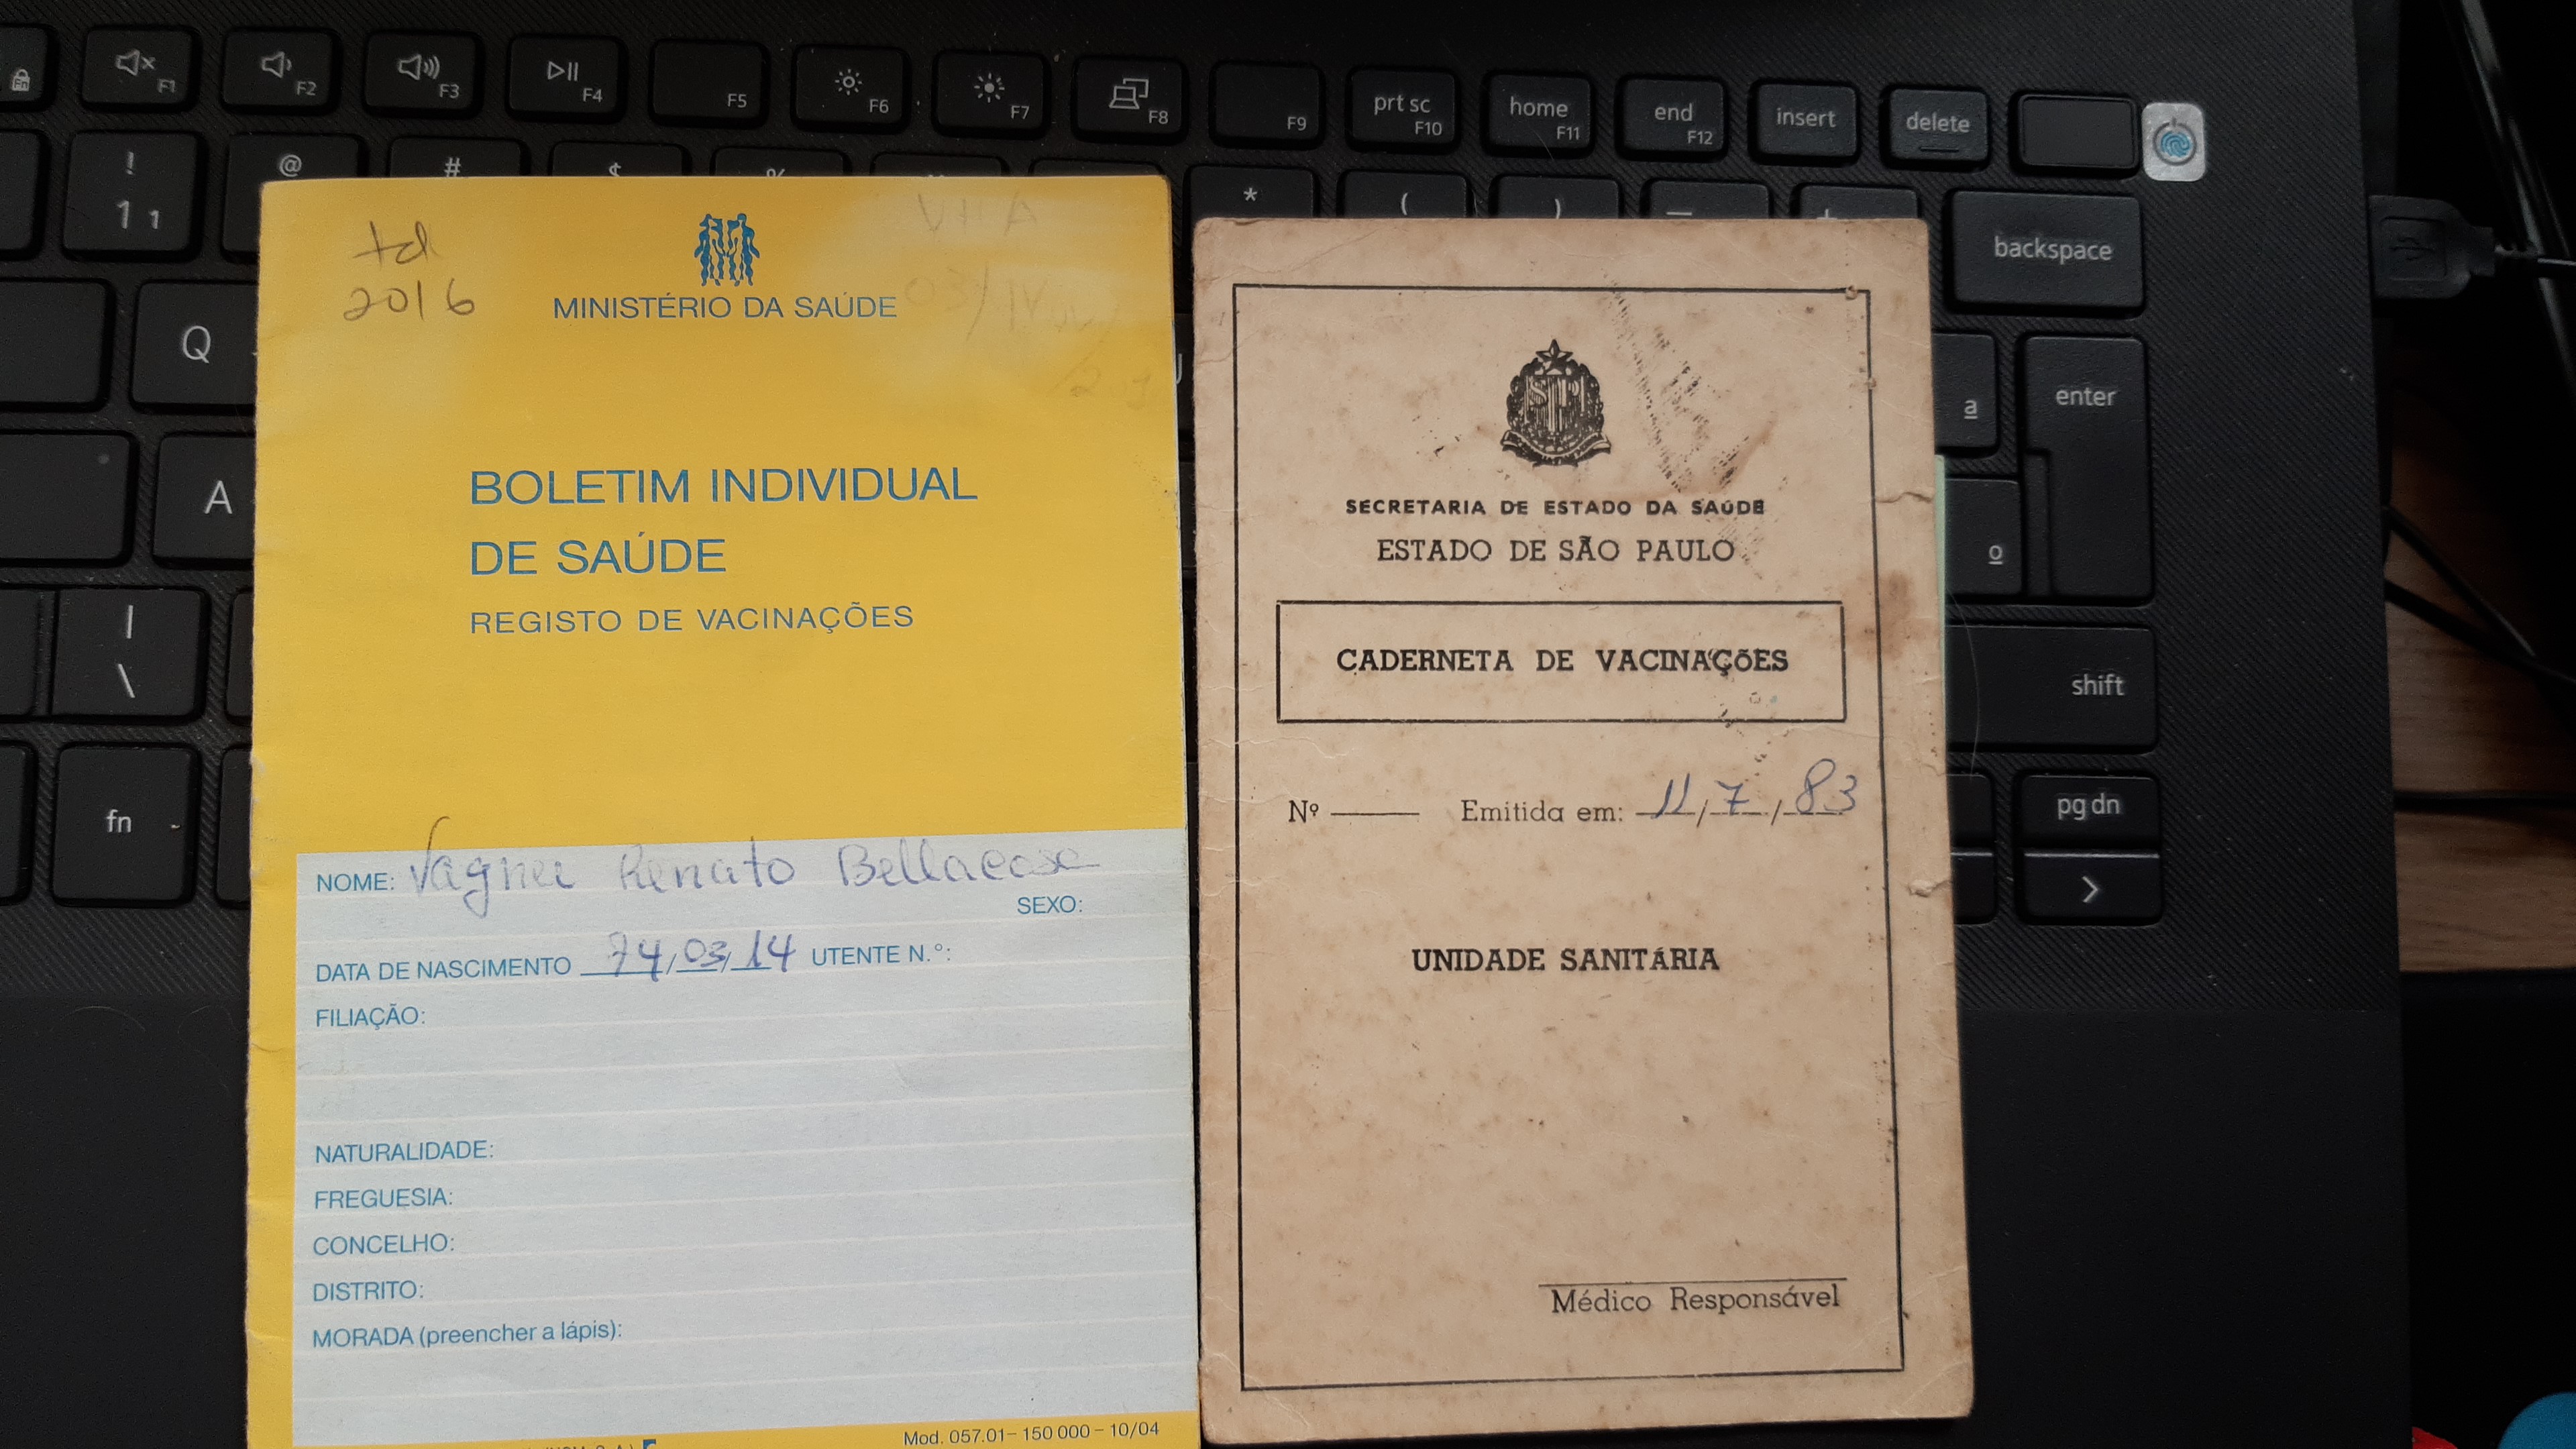 F1
F2
F3
F4
F5
F6
F7
F8
F9
prt sc
F10
home
F11
end
F12
insert
delete
!
1 1
@
#
$
%
*
(
)
backspace
Q
A
|
\
fn
ª
º
enter
shift
pg dn
>
td
2016
VHA
MINISTÉRIO DA SAÚDE
BOLETIM INDIVIDUAL
DE SAÚDE
REGISTO DE VACINAÇÕES
NOME: Vagner Renato Bellacosa
SEXO:
DATA DE NASCIMENTO 74/03/14 UTENTE N.º:
FILIAÇÃO:
NATURALIDADE:
FREGUESIA:
CONCELHO:
DISTRITO:
MORADA (preencher a lápis):
Mod. 057.01 – 150 000 – 10/04
SP
SECRETARIA DE ESTADO DA SAÚDE
ESTADO DE SÃO PAULO
CADERNETA DE VACINAÇÕES
Nº Emitida em: 11/7/83
UNIDADE SANITÁRIA
Médico Responsável